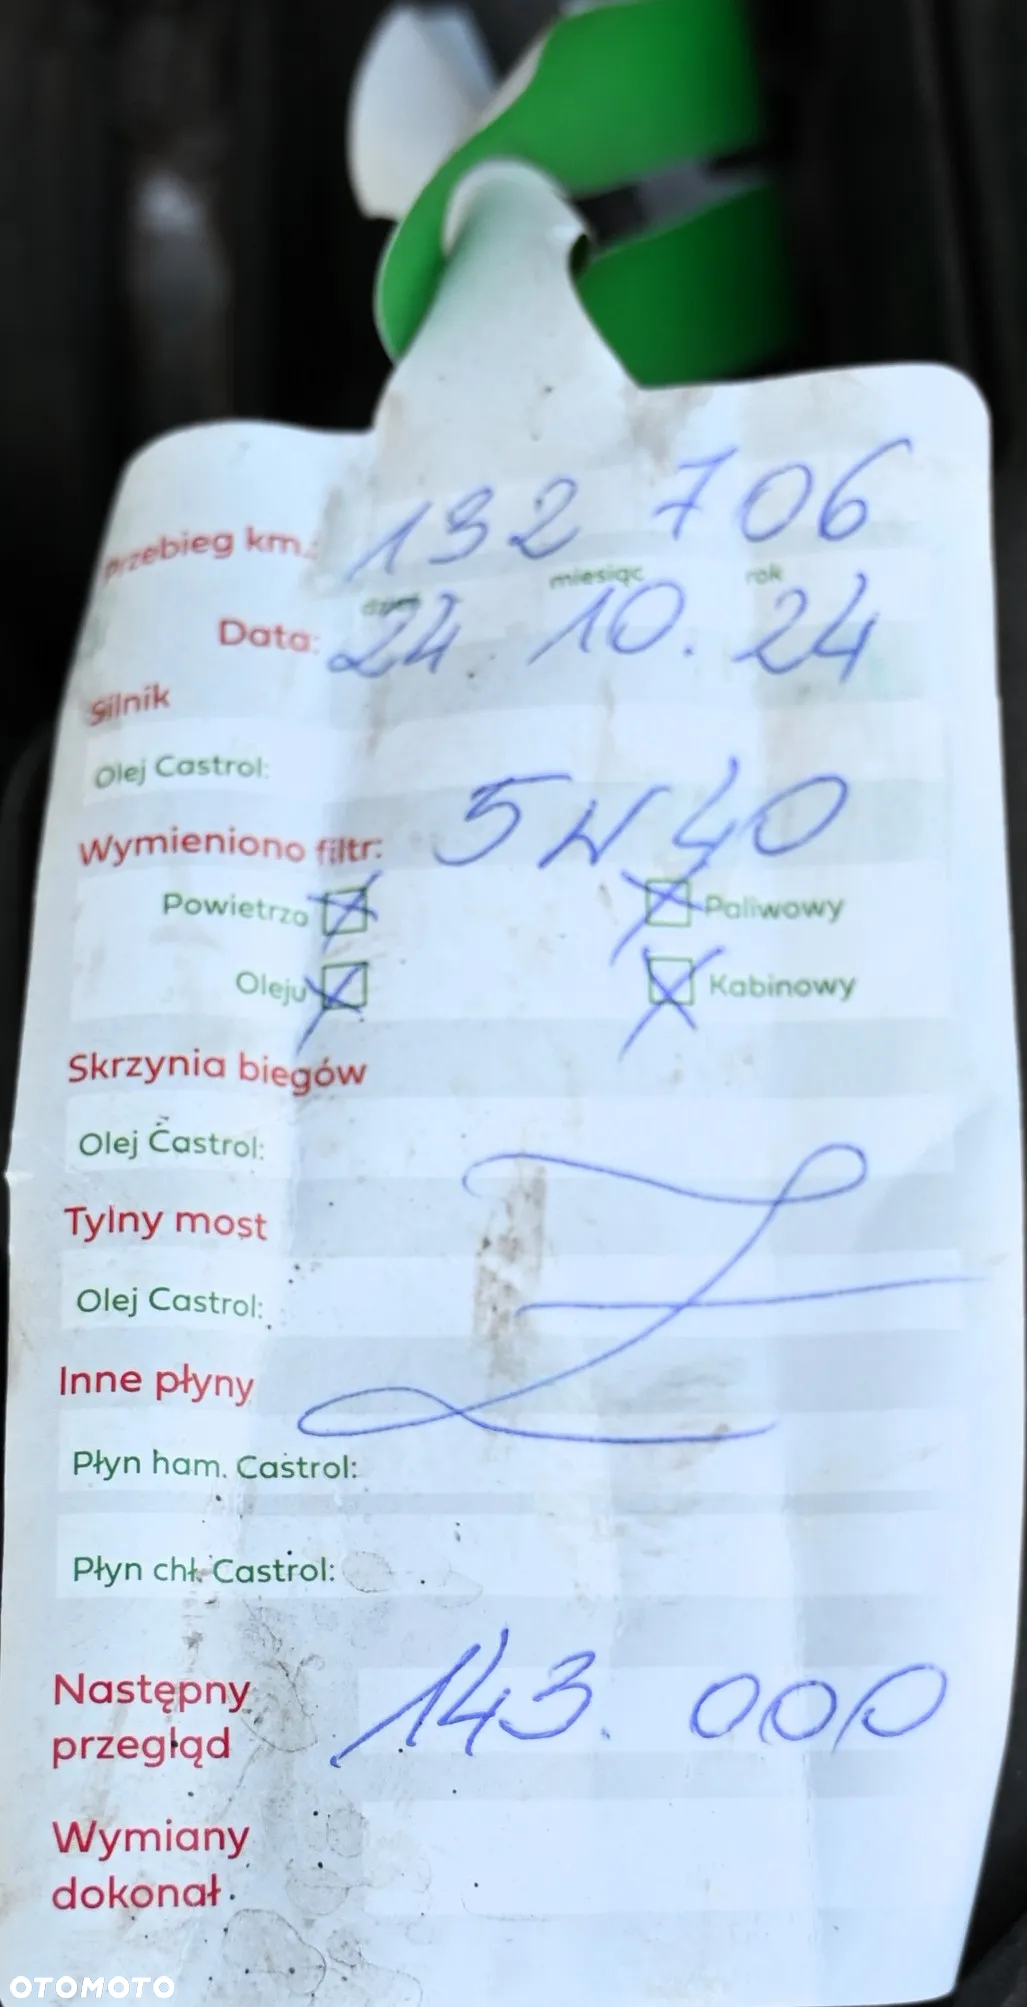 Przebieg km.: 132 706
dzień miesiąc rok
Data: 24. 10. 24
Silnik
Olej Castrol:
5W40
Wymieniono filtr:
Powietrza Paliwowy
Oleju Kabinowy
Skrzynia biegów
Olej Castrol:
Tylny most
Olej Castrol:
Inne płyny
Płyn ham. Castrol:
Płyn chł. Castrol:
Następny
przegląd 143.000
Wymiany
dokonał
OTOMOTO